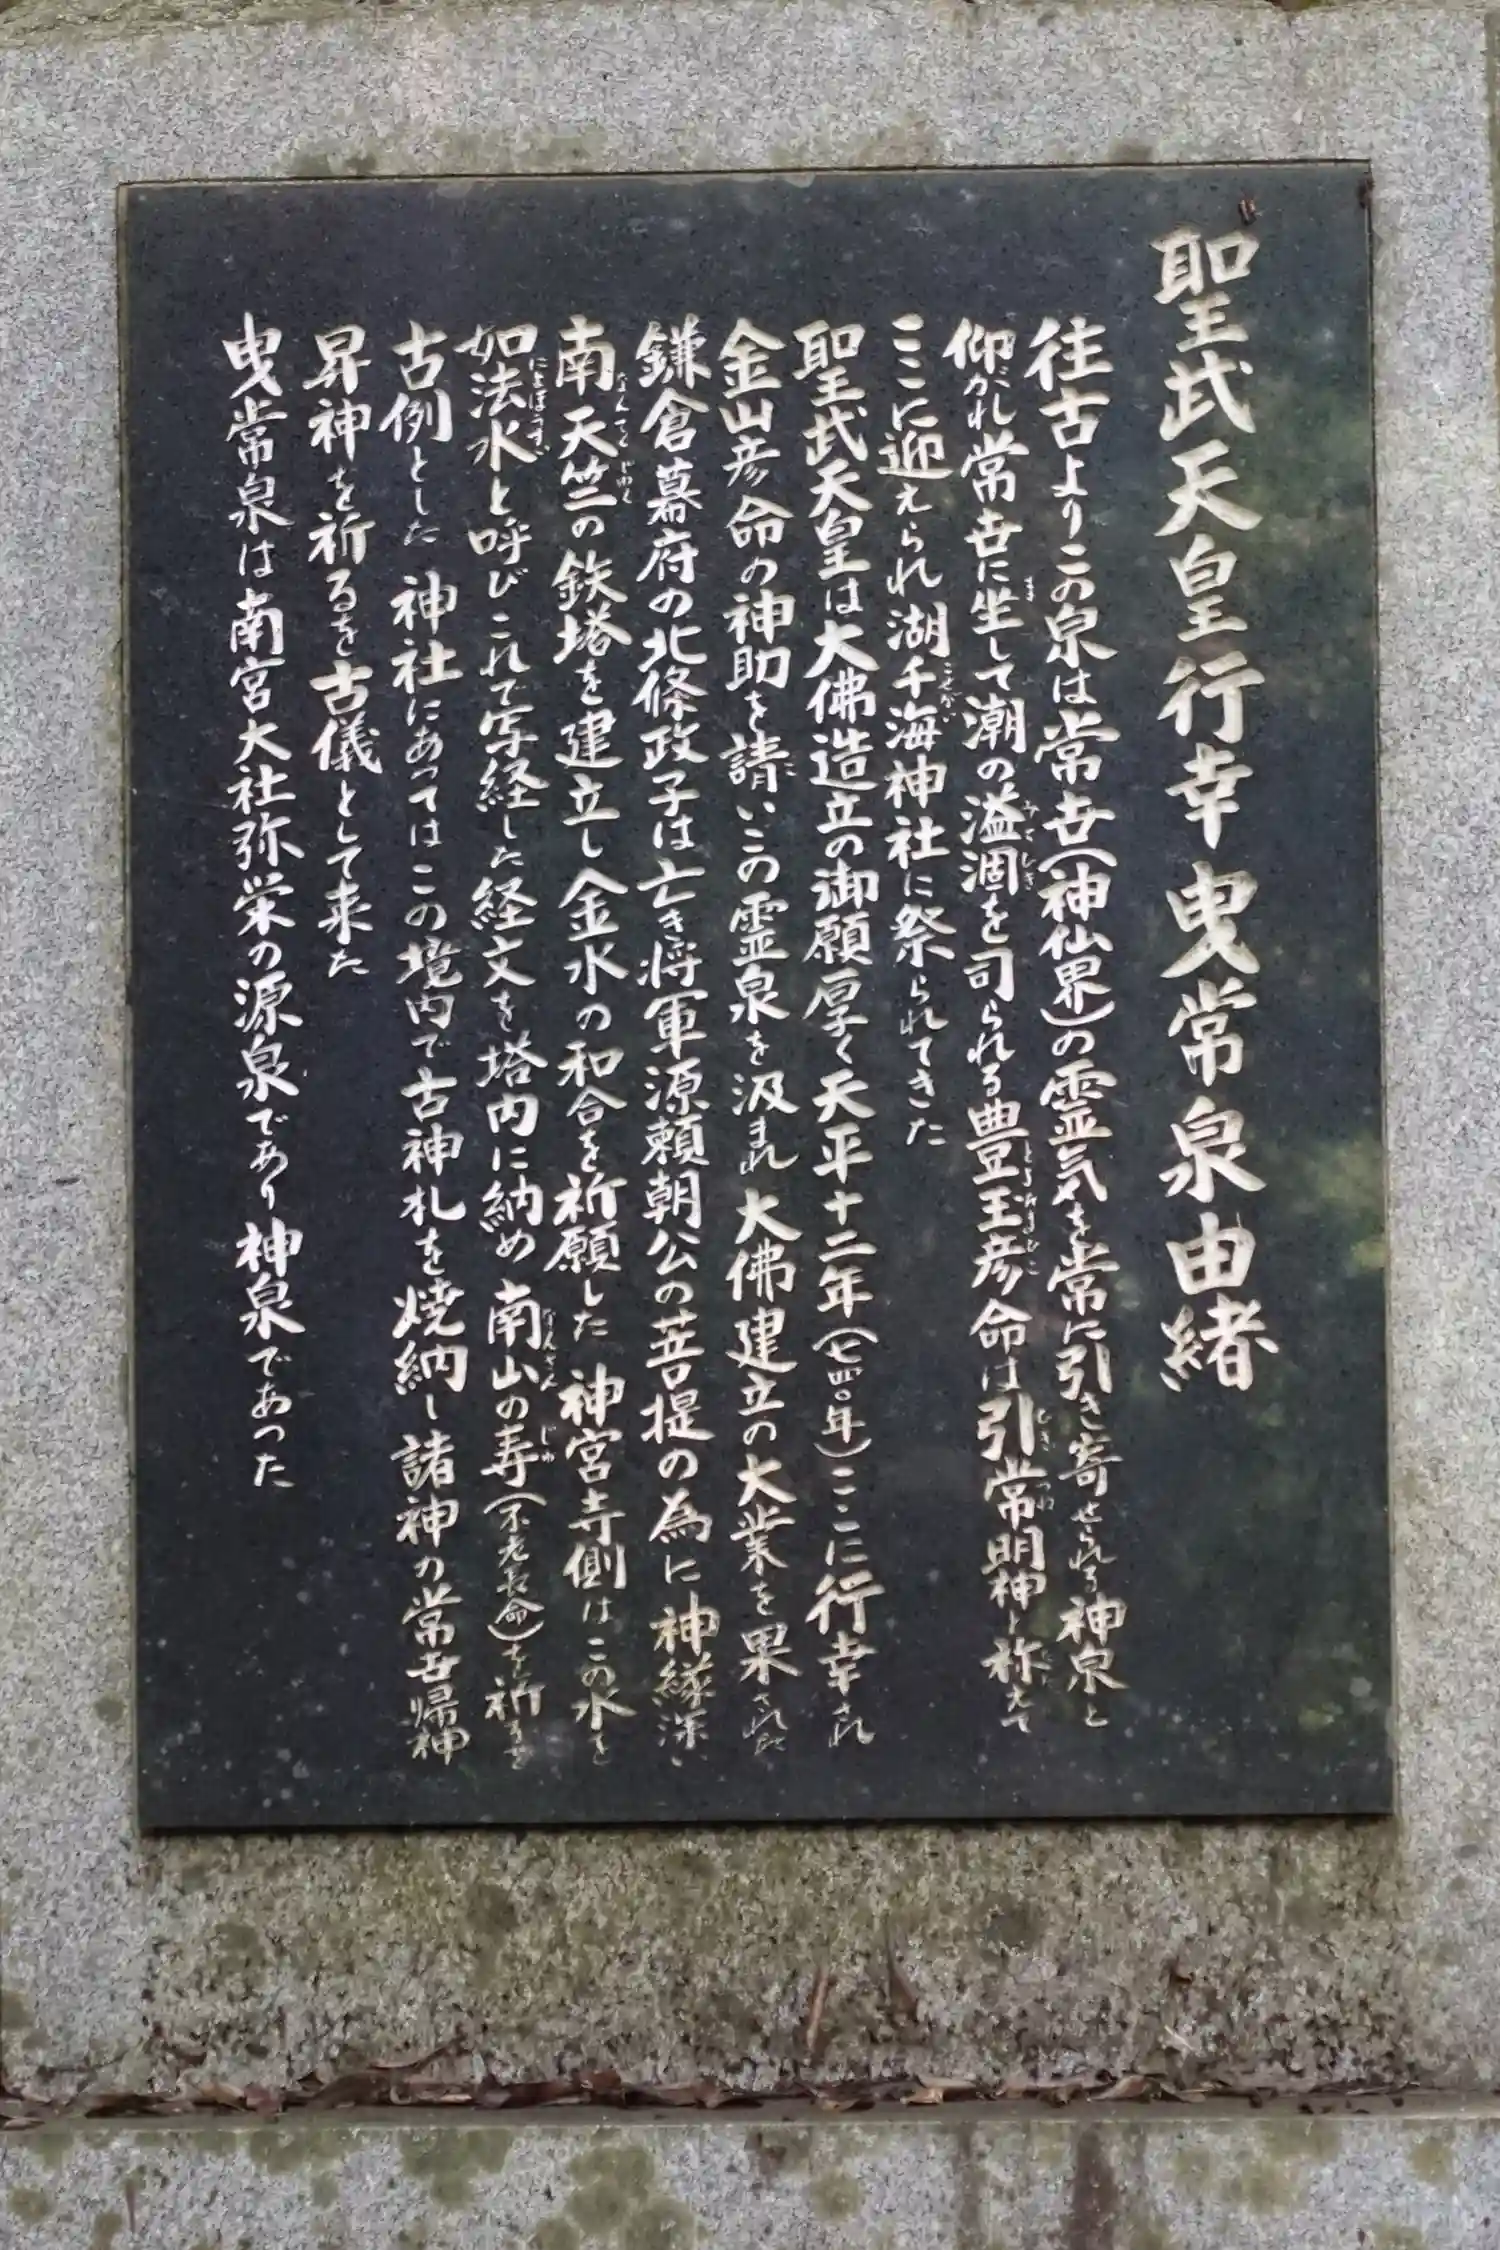 聖武天皇行幸曳常泉由緒
往古よりこの泉は常世(神仙界)の霊気を常に引き寄せられる神泉と
仰がれ常世に坐して潮の溢涸を司られる豊玉彦命は引常明神と称えて
ここに迎えられ湖千海神社に祭られてきた
聖武天皇は大佛造立の御願厚く天平十二年(七四〇年)ここに行幸され
金山彦命の神助を請いこの霊泉を汲まれ大佛建立の大業を果された
鎌倉幕府の北條政子は亡き将軍源頼朝公の菩提の為に神縁深い
南天竺の鉄塔を建立し金水の和合を祈願した神宮寺側はこの水を
如法水と呼びこれで写経した経文を塔内に納め南山の寿(不老長命)を祈るを
古例とした神社にあってはこの境内で古神札を焼納し諸神の常世帰神
昇神を祈るを古儀として来た
曳常泉は南宮大社弥栄の源泉であり神泉であった